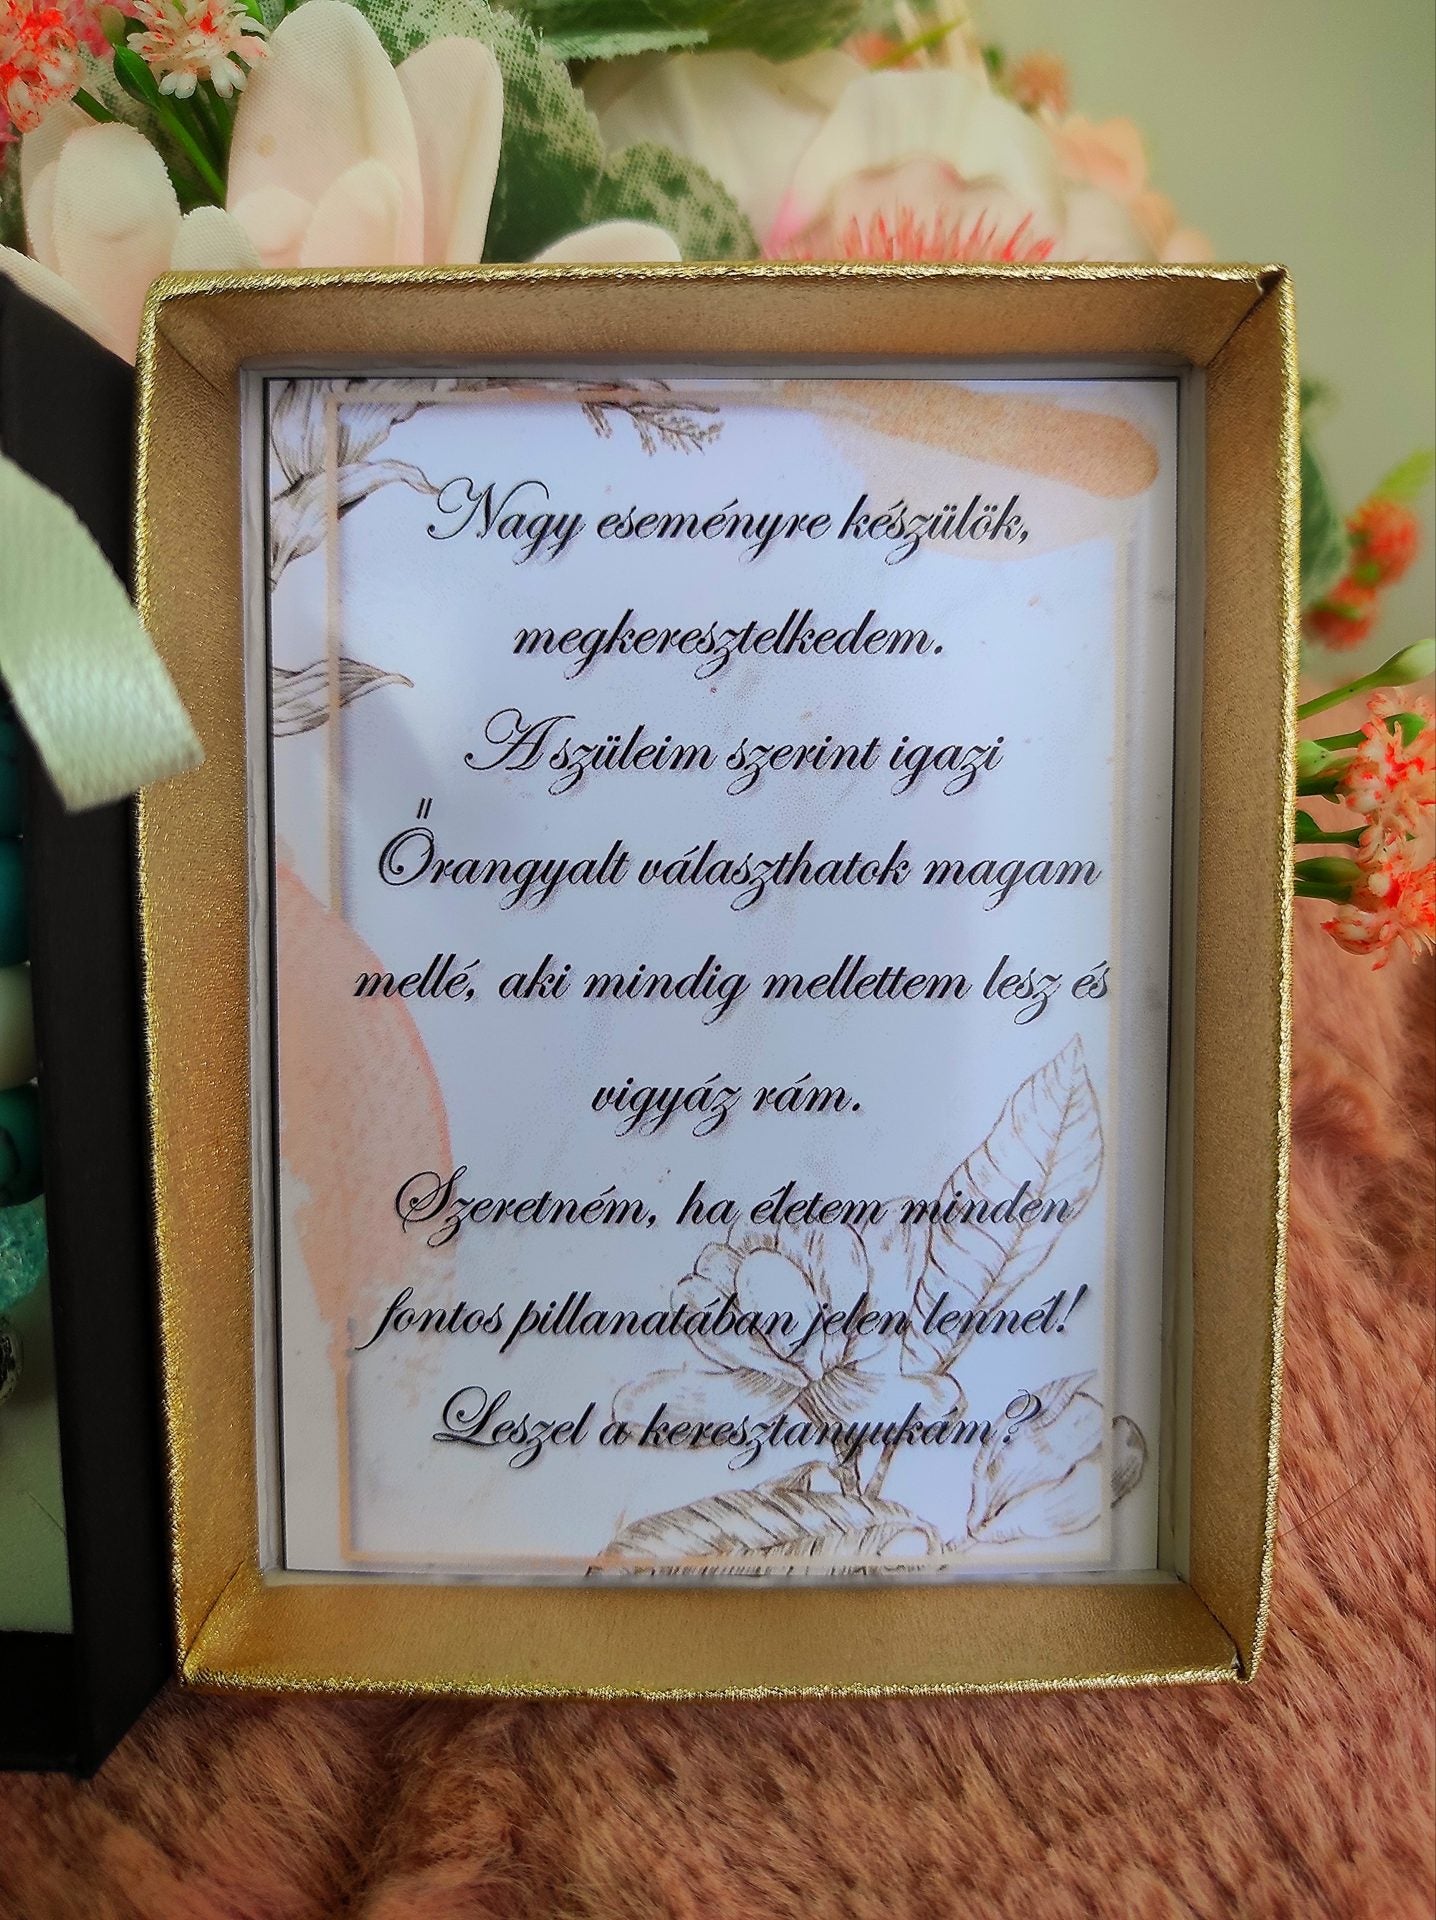 Nagy eseményre készülök,
megkeresztelkedem.
A szüleim szerint igazi
Őrangyalt választhatok magam
mellé, aki mindig mellettem lesz és
vigyáz rám.
Szeretném, ha életem minden
fontos pillanatában jelen lennél!
Leszel a keresztanyukám?